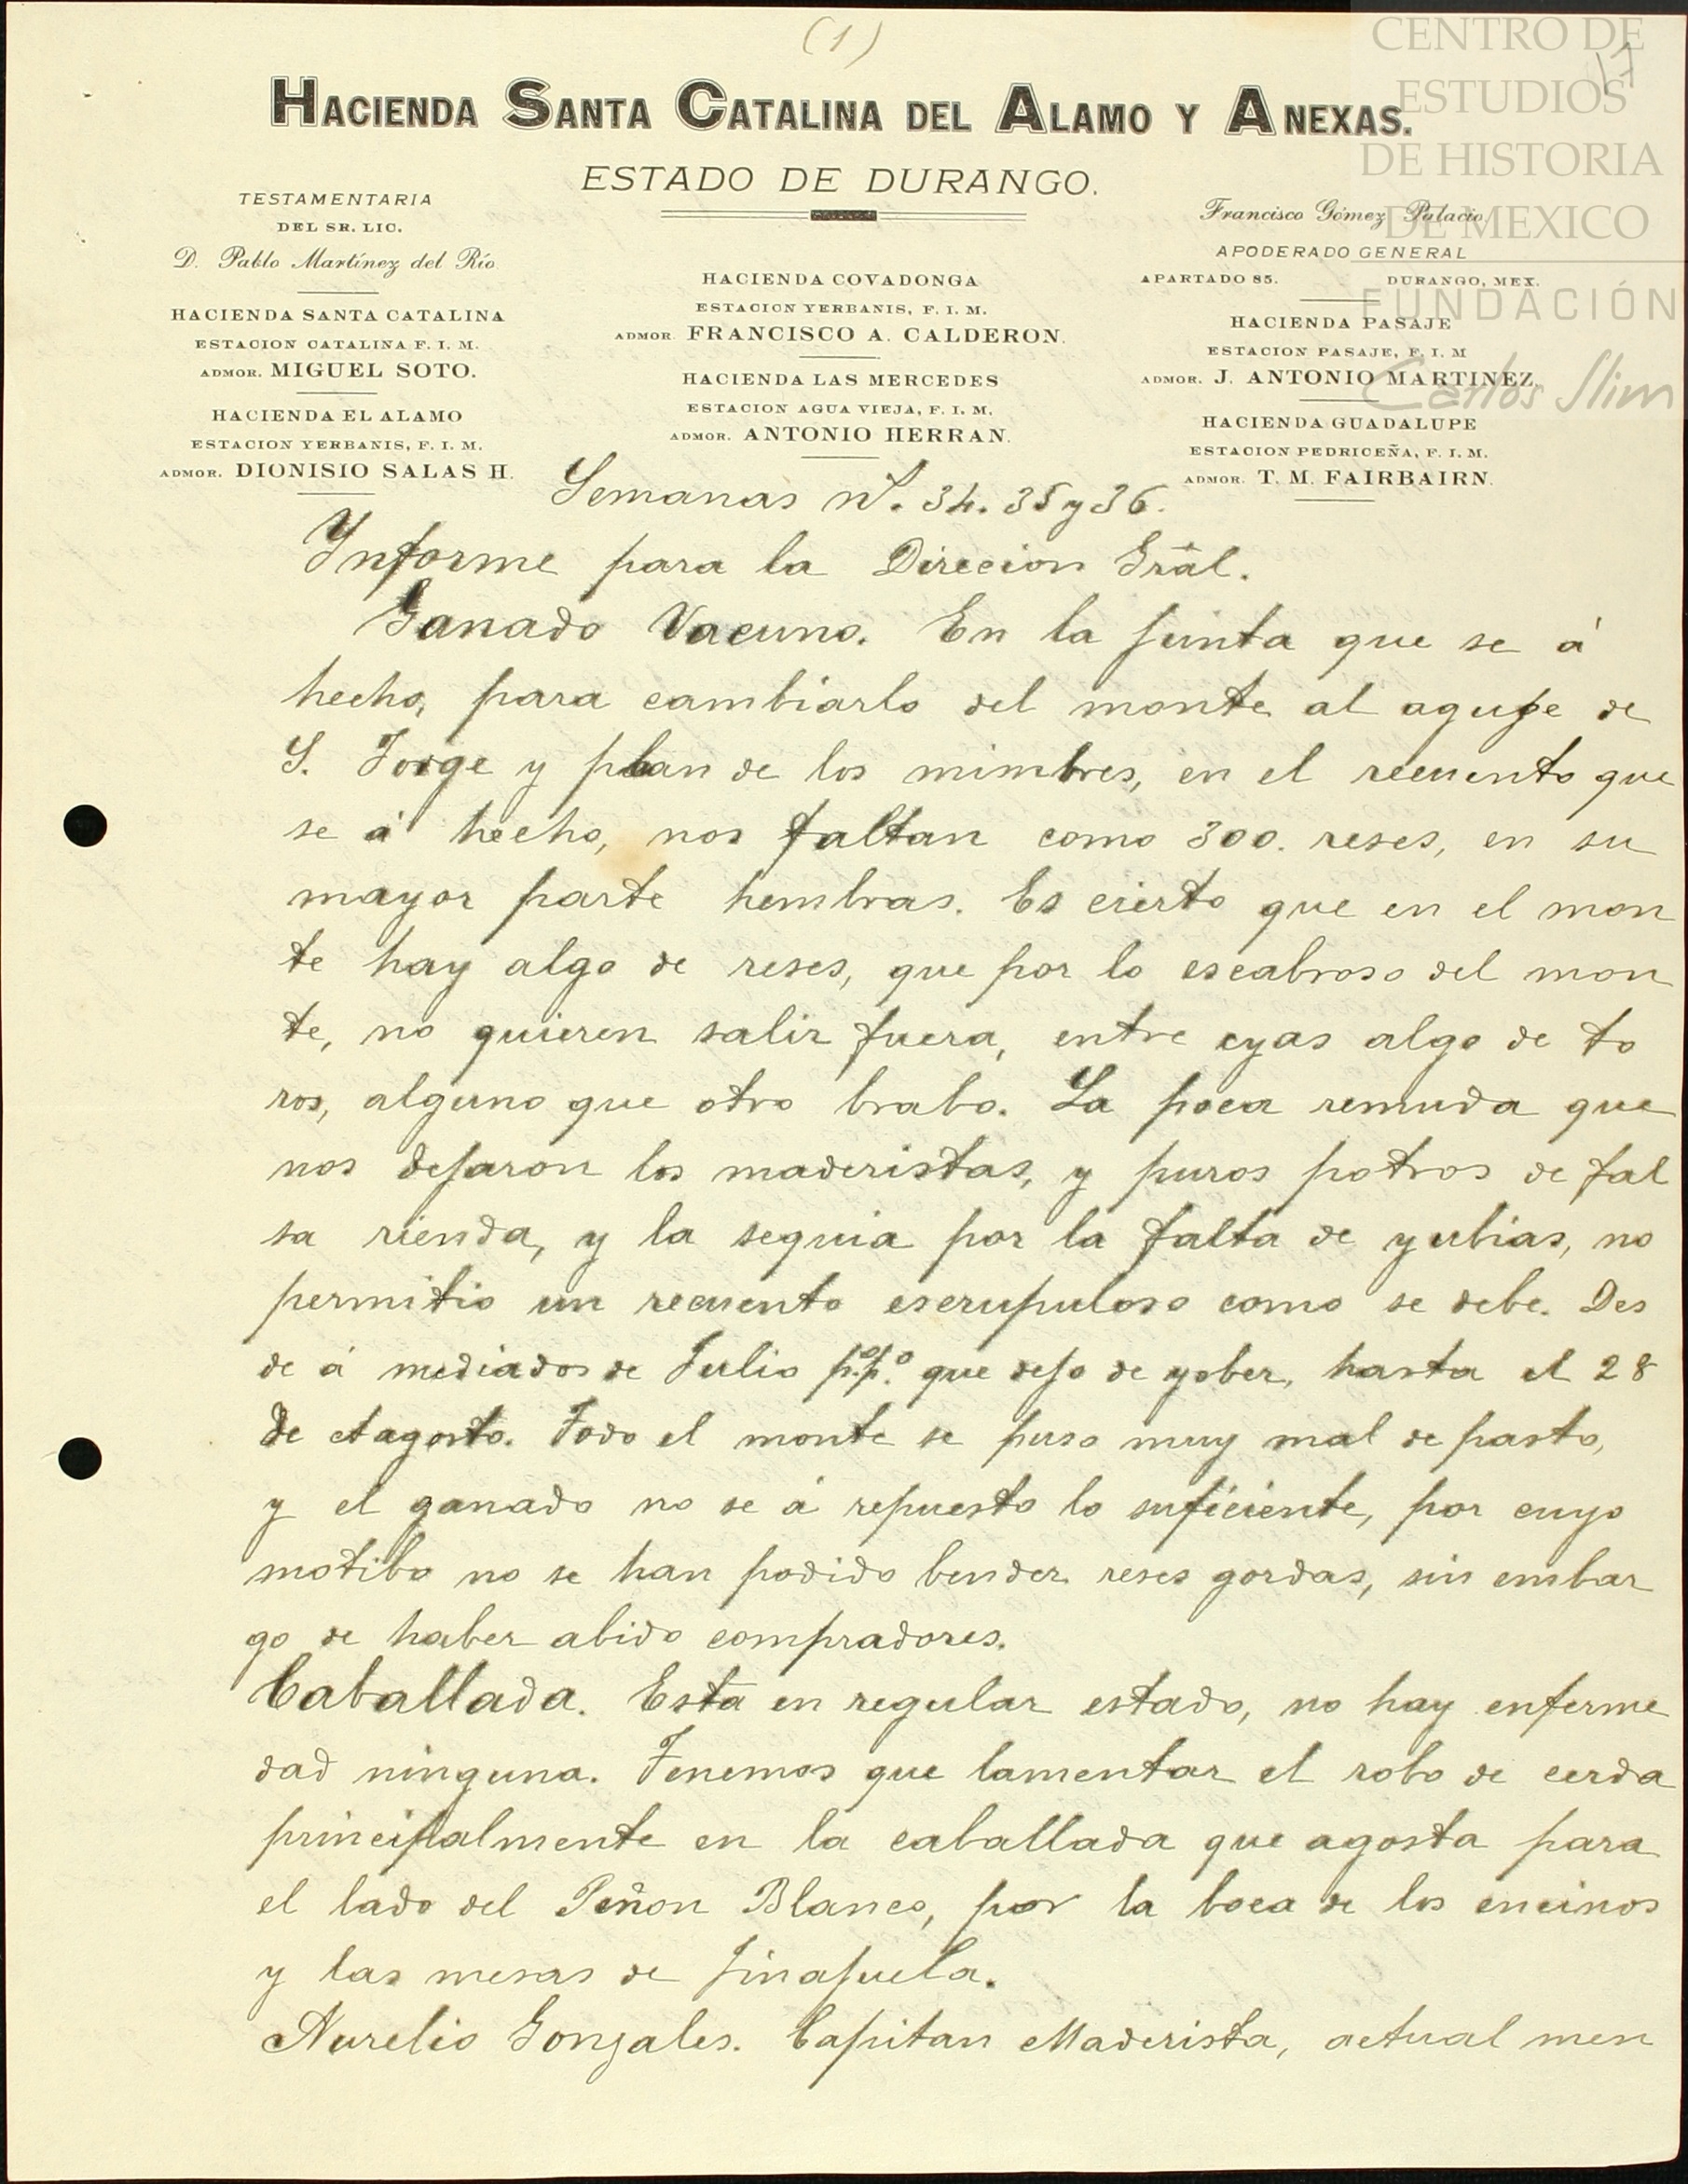 (1)
17
CENTRO DE
ESTUDIOS
DE HISTORIA
DE MEXICO
FUNDACIÓN
Carlos Slim
HACIENDA SANTA CATALINA DEL ALAMO Y ANEXAS.
ESTADO DE DURANGO.
TESTAMENTARIA
DEL SR. LIC.
D. Pablo Martínez del Río
HACIENDA SANTA CATALINA
ESTACION CATALINA F. I. M.
ADMOR. MIGUEL SOTO.
HACIENDA EL ALAMO
ESTACION YERBANIS, F. I. M.
ADMOR. DIONISIO SALAS H.
HACIENDA COVADONGA
ESTACION YERBANIS, F. I. M.
ADMOR. FRANCISCO A. CALDERON.
HACIENDA LAS MERCEDES
ESTACION AGUA VIEJA, F. I. M.
ADMOR. ANTONIO HERRAN.
Francisco Gómez Palacio
APODERADO GENERAL
APARTADO 85. DURANGO, MEX.
HACIENDA PASAJE
ESTACION PASAJE, F. I. M
ADMOR. J. ANTONIO MARTINEZ.
HACIENDA GUADALUPE
ESTACION PEDRICEÑA, F. I. M.
ADMOR. T. M. FAIRBAIRN.
Semanas Nº. 34. 35 y 36.
Ynforme para la Direcion Gral.
Ganado Vacuno. En la junta que se á
hecho, para cambiarlo del monte al aguje de
S. Jorge y plan de los mimbres, en el recuento que
se á hecho, nos faltan como 300. reses, en su
mayor parte hembras. Es cierto que en el mon
te hay algo de reses, que por lo escabroso del mon
te, no quieren salir fuera, entre eyas algo de to
ros, alguno que otro brabo. La poca remuda que
nos dejaron los maderistas, y puros potros de fal
sa rienda, y la sequia por la falta de yubias, no
permitio un recuento escrupuloso como se debe. Des
de á mediados de Julio p.º p.º que dejo de yober, hasta el 28
de Agosto. Todo el monte se puso muy mal de pasto,
y el ganado no se á repuesto lo suficiente, por cuyo
motibo no se han podido bender reses gordas, sin embar
go de haber abido compradores.
Caballada. Esta en regular estado, no hay enferme
dad ninguna. Tenemos que lamentar el robo de cerda
principalmente en la caballada que agosta para
el lado del Peñon Blanco, por la boca de los encinos
y las mesas de jinajuela.
Aurelio Gonzales. Capitan Maderista, actual men